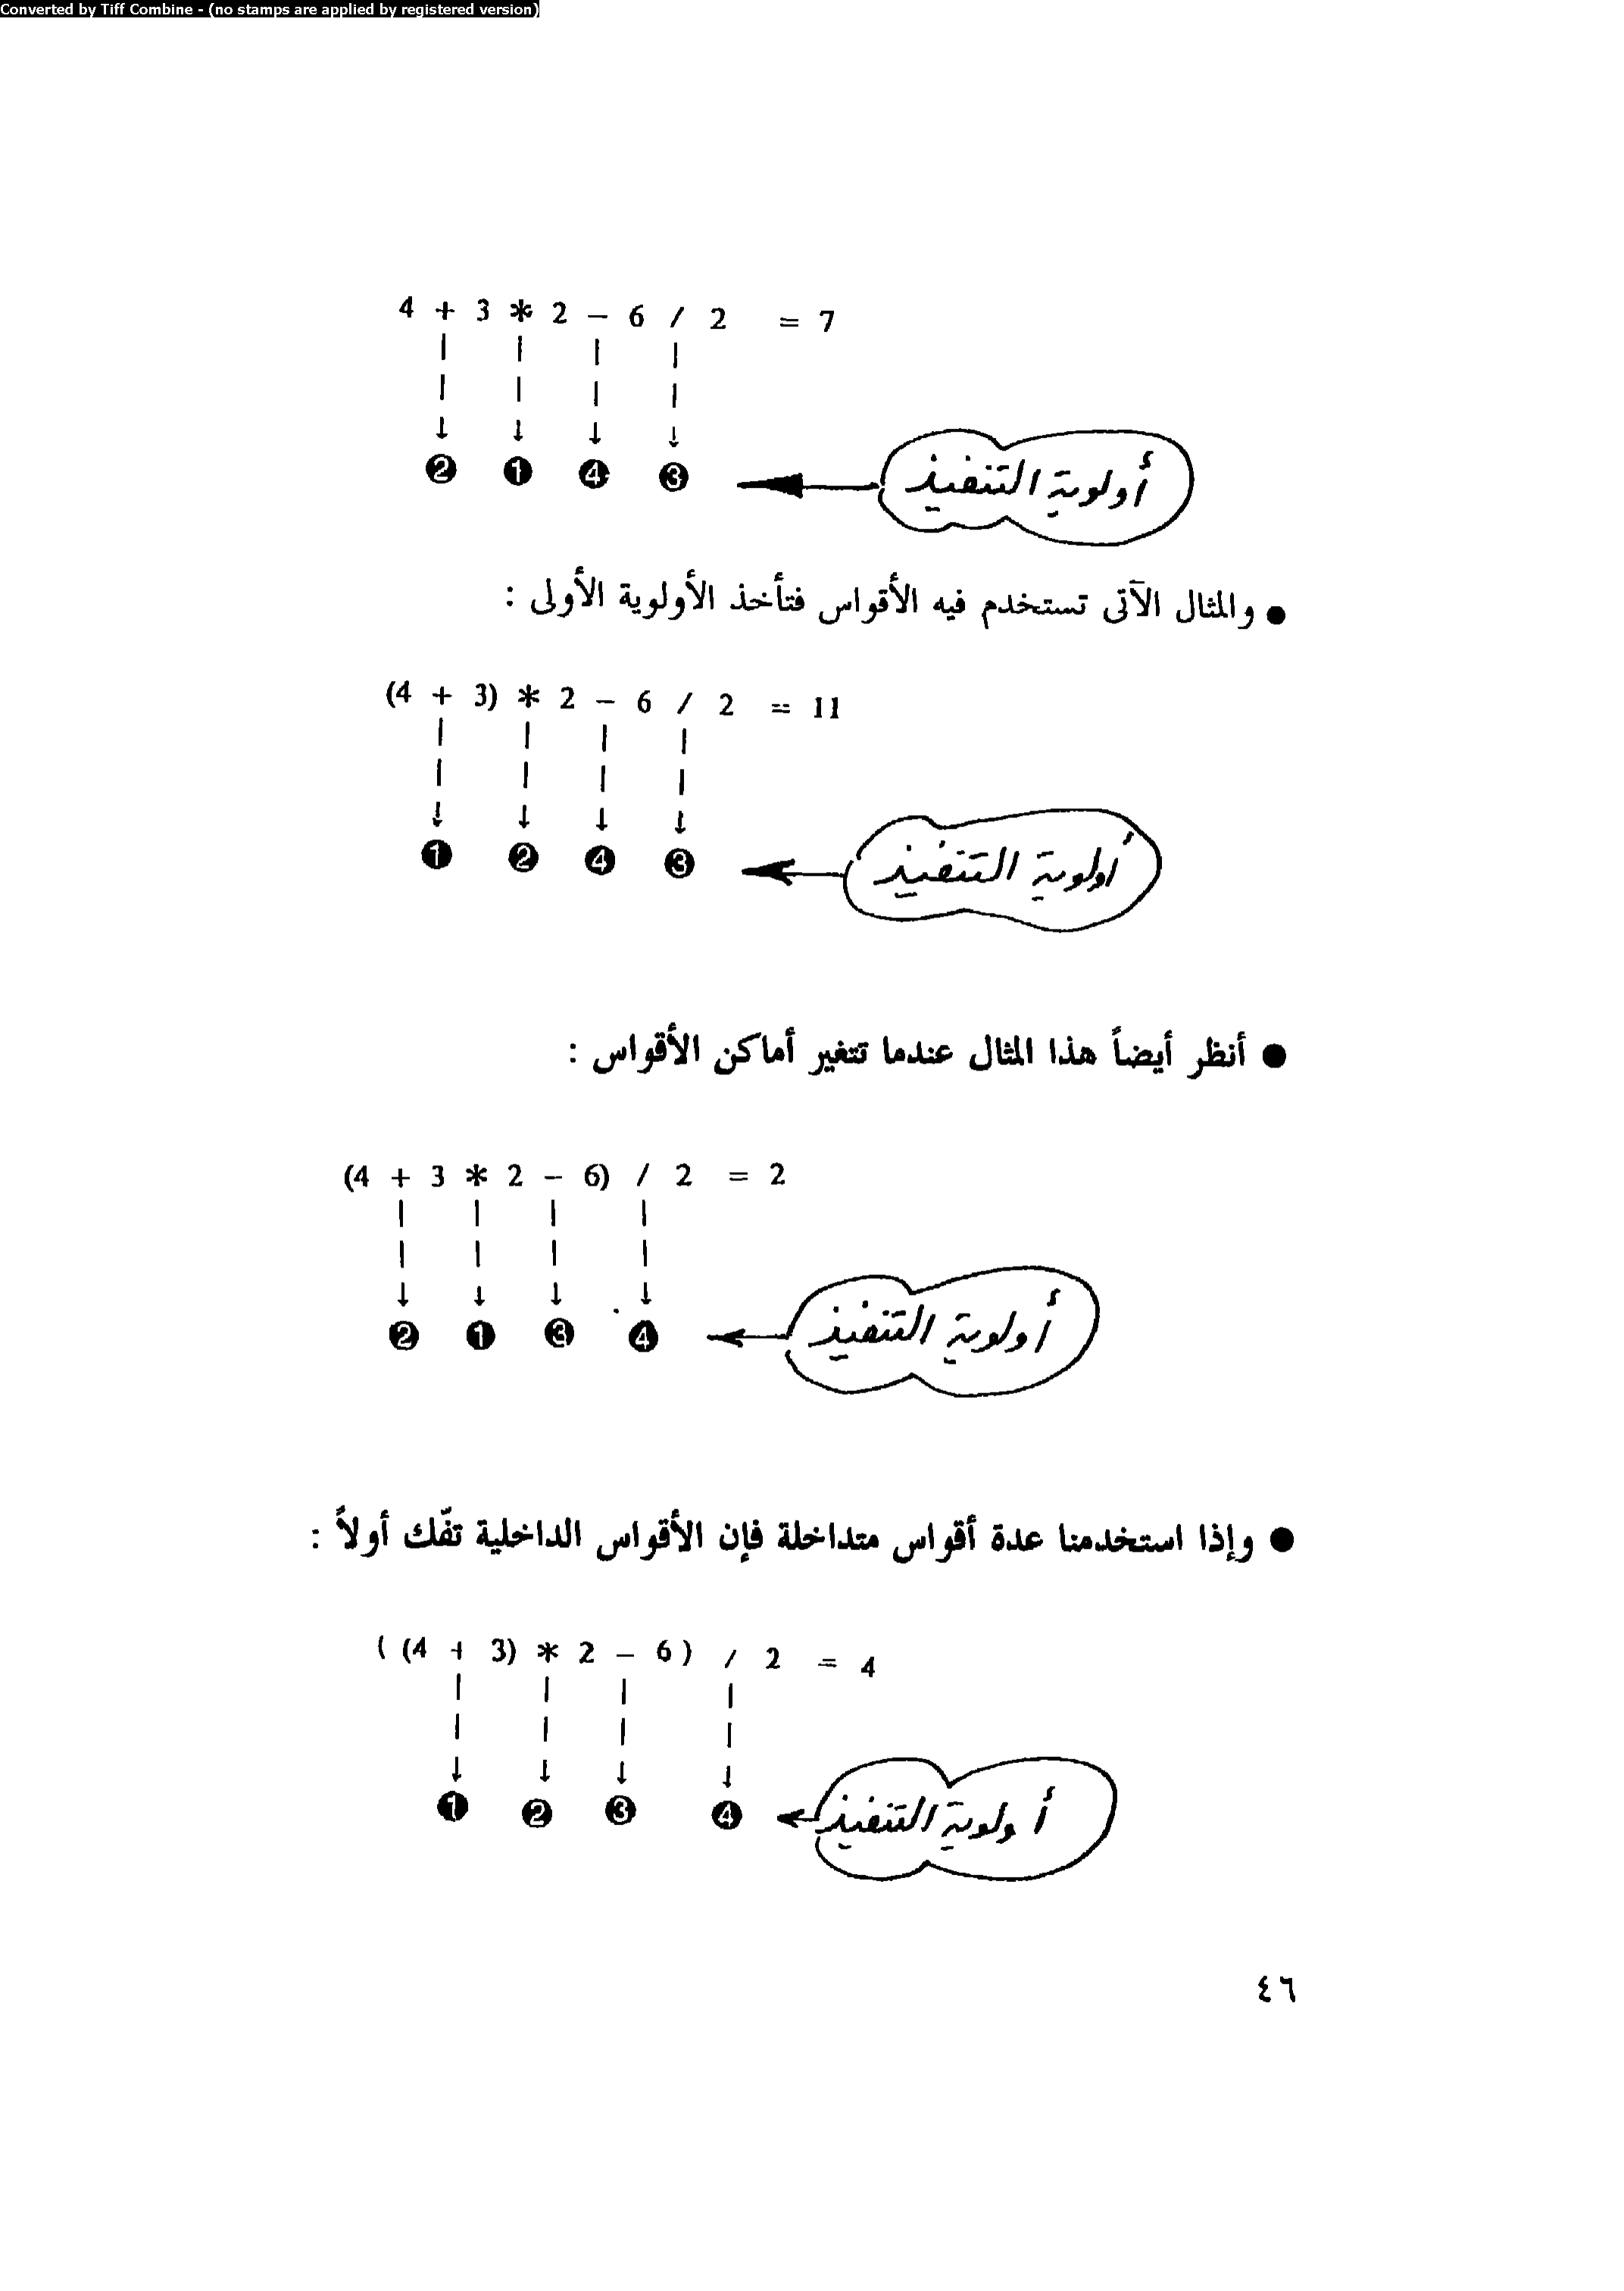 Converted by Tiff Combine - (no stamps are applied by registered version)
4 + 3 * 2 – 6 / 2 = 7
❷ ❶ ❹ ❸
أولوية التنفيذ
● والمثال الآتى تستخدم فيه الأقواس فتأخذ الأولوية الأولى :
(4 + 3) * 2 – 6 / 2 = 11
❶ ❷ ❹ ❸
أولوية التنفيذ
● أنظر أيضاً هذا المثال عندما تتغير أماكن الأقواس :
(4 + 3 * 2 – 6) / 2 = 2
❷ ❶ ❸ ❹
أولوية التنفيذ
● وإذا استخدمنا عدة أقواس متداخلة فإن الأقواس الداخلية تفّك أولاً :
( (4 + 3) * 2 – 6 ) / 2 = 4
❶ ❷ ❸ ❹
أولوية التنفيذ
٤٦